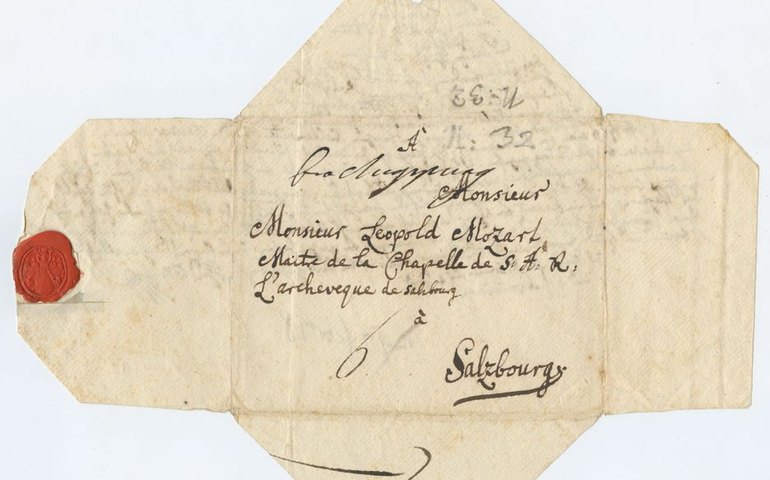 N: 32
À
N: 32
fco Augspurg
Monsieur
Monsieur Leopold Mozart
Maitre de la Chapelle de S: A: R:
L'archeveque de Salzbourg
à
6
Salzbourg